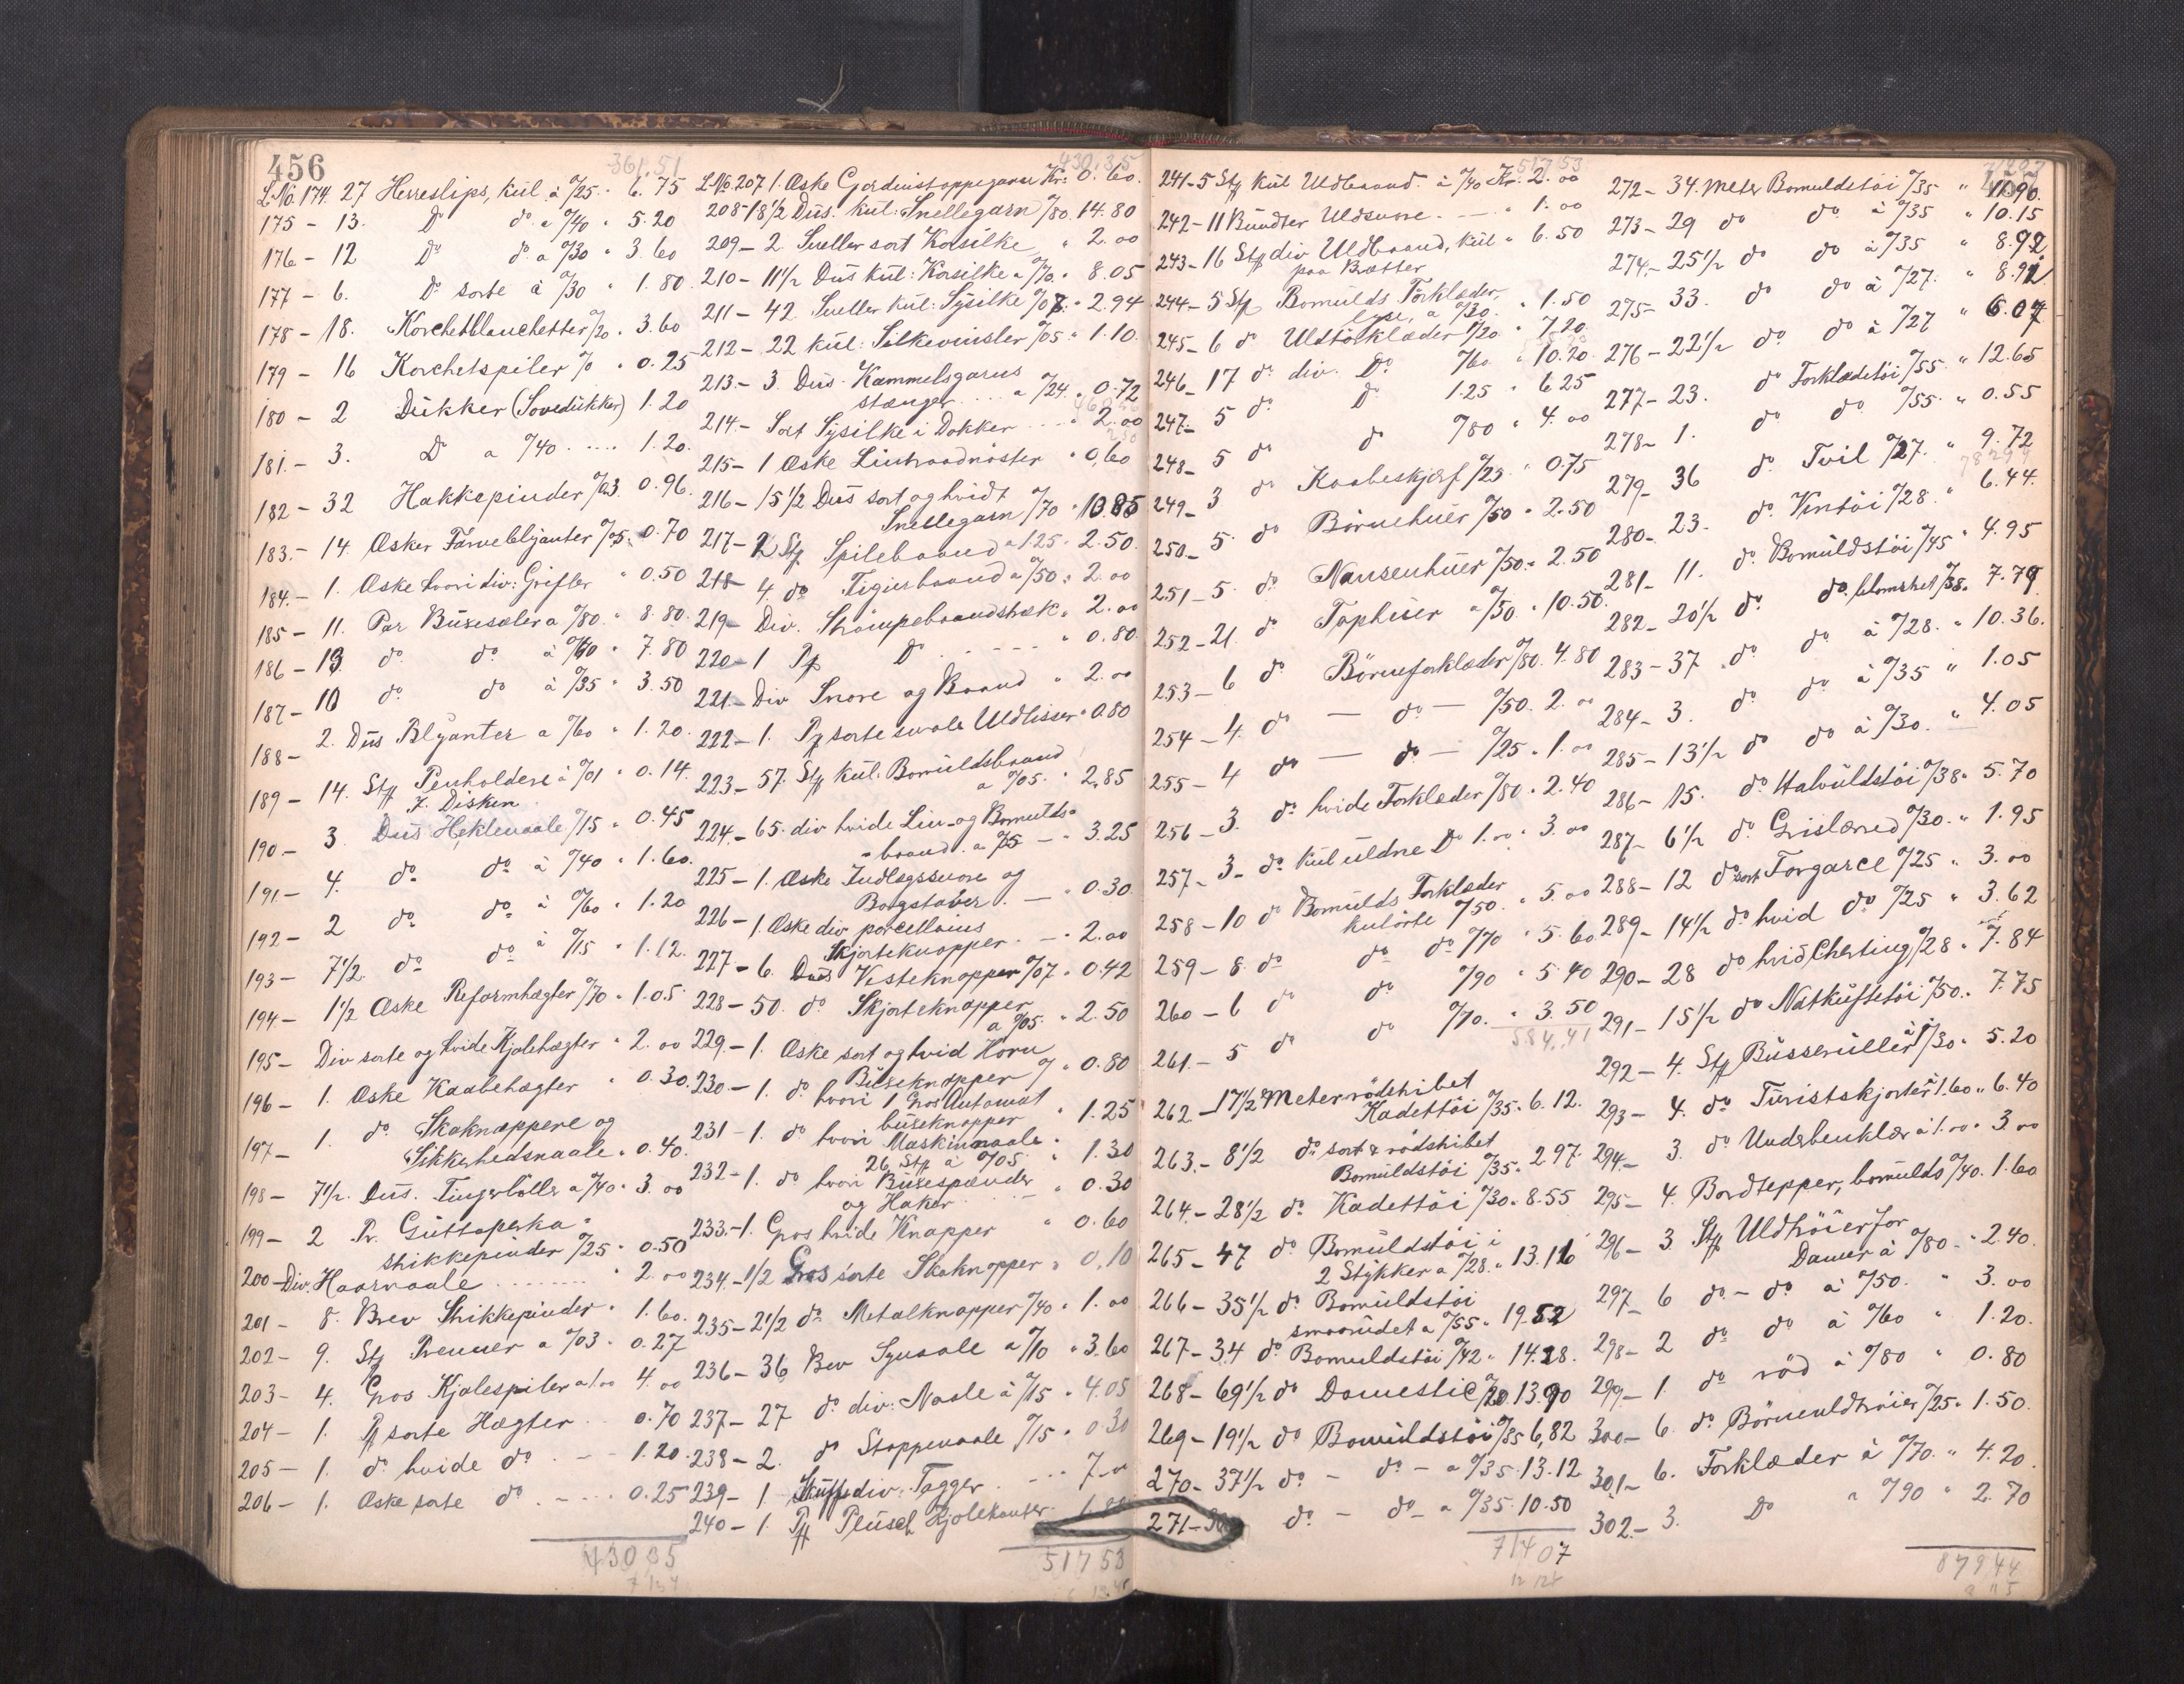 456
361.51
L.No. 174. 27 Herreslips, kul. à 0/25 " 6.75
175 - 13. Do do a 0/40 " 5.20
176 - 12 Do do a 0/30 " 3.60
177 - 6. Do sorte à 0/30 " 1.80
178 - 18. Korchetblanchetter 0/20 " 3.60
179 - 16 Korchetspiler " 0.25
180 - 2 Dukker (Sovedukker) 1.20
181. - 3. Do a 0/40 .... 1.20.
182 - 32 Hakkepinder 0/03. 0.96.
183. - 14. Æsker Farveblyanter 0/05. 0.70
184. - 1. Æske hvori div: Grifler " 0.50
185 - 11. Par Buxeseler a 0/80. " 8.80.
186 - 13 do do à 0/60 " 7.80
187 - 10 do do à 0/35 " 3.50
188 - 2. Dus Blyanter a 0/60 " 1.20.
189 - 14. Stk Penholdere à 0/01 " 0.14.
I. Disken.
190. - 3 Dus Heklenaale 0/15 " 0.45
191 - 4. do do à 0/40 " 1.60.
192 - 2 do do à 0/60 " 1.20
193 - 7 1/2 do do à 0/15 " 1.12.
194 - 1 1/2 Æske Reformhægter 0/70 " 1.05.
195 - Div sorte og hvide Kjolehægter " 2.00
196 - 1. Æske Kaabehægter " 0.30.
197 - 1. do Skoknæppere og
Sikkerhedsnaale " 0.40.
198 - 7 1/2. Dus. Fingerbölle a 0/40 " 3.00
199 - 2 Pr. Guttaperka "
strikkepinder 0/25 " 0.50
200 - Div. Haarnaale ....... " 2.00
201 - 8. Brev Strikkepinder " 1.60.
202 - 9. Stk Prenner a 0/03 " 0.27
203 - 4. Gros Kjolespiler a 1.00 4.00
204 - 1. Pk sorte Hægter .. 0.70
205 - 1. do hvide do . - - 1.20.
206 - 1. Æske sorte do . - ... 0.25
430 35
430.35
L.No. 207 1. Æske Gardinstoppegarn Kr. 0.60.
208 - 18 1/2 Dus. kul: Snellegarn 0/80. 14.80
209 - 2. Sneller sort Korsilke " 2.00
210 - 11 1/2 Dus kul: Korsilke a 0/70. " 8.05
211 - 42. Sneller kul: Sysilke 0/07. " 2.94
212 - 22 kul: Silkevinsler 0/05 " 1.10.
213. - 3. Dus. Kammelsgarns
stænger .... a 0/24. " 0.72
214. - Sort Sysilke i Dokker .... " 2.00
215 - 1 Æske Lintraadnöster " 0,60
216 - 15 1/2 Dus sort og hvidt
Snellegarn 0/70 " 10.85
217 - 2 Stk Spilebaand a 1.25 " 2.50.
218 - 4 do Figierbaand a 0/50 " 2.00
219 - Div. Strömpebaandstrik " 2.00
220 - 1 Pk Do . - - - - " 0.80.
221. - Div Snore og Baand " 2.00
222 - 1. Pk sorte smale Uldlisser " 0.80
223 - 57. Stk kul. Bomuldsbaand
a 0/05. " 2.85
224 - 65. div hvide Lin- og Bomulds-
baand. a 0/5 — " 3.25
225 - 1. Æske Indlægssnore og
Bogstaver. — " 0.30
226 - 1. Æske div porcellains
Skjorteknapper. — " 2.00
227 - 6. Dus Vesteknapper 0/07. " 0.42
228 - 50. do Skjorteknapper
a 0/05. " 2.50
229. - 1. Æske sort og hvid Horn
Buxeknapper " 0.80
230. - 1. do hvori 1 Gros Automat
buxeknapper " 1.25
231 - 1. do hvori Maskinnaale "
26 Stk à 0/05 " 1.30
232 - 1. do hvori Buxespænder
og Haker - - " 0.30
233. - 1. Gros hvide Knapper " 0.60
234. - 1/2 Gros sorte Skoknapper " 0,10
235 - 2 1/2 do Metalknapper 0/40 " 1.00
236 - 36 Brev Synaale a 0/10 " 3.60
237 - 27 do div: Naale à 0/15 " 4.05
238 - 2. do Stoppenaale 0/15 " 0.30
239 - 1 Skuffe div. Tagger. - ... 7.00
240 - 1. Pk Plusch Kjolekanter
517 53
517 53
241 - 5 Stk kul Uldbaand. à 0/40 Kr. 2.00
242 - 11 Bundter Uldsnore. - - " 1.00
243 - 16 Stk div Uldbaand, kul " 6.50
paa Brætter
244 - 5 Stk Bomulds Törklæder,
lyse, a 0/30. " 1.50
245 - 6 do Uldtörklæder 1/20 " 7.20
246 - 17 do div. Do 0/60 " 10.20
247 - 5 do Do 1.25 " 6.25
248 - 5 do do 0/80 " 4.00
249 - 3 do Kaabeskjærf 0/25 " 0.75
250 - 5. do Börnehuer 0/50 " 2.50
251 - 5. do Nansenhuer 0/50 " 2.50
252 - 21. do Tophuer a 0/50 " 10.50.
253 - 6 do Börneforklæder 0/80. 4.80
254 - 4. do — do — 0/50. 2.00
255 - 4 do — do — 0/25 " 1.00
256 - 3. do hvide Forklæder 0/80 " 2.40
257 - 3 - do kul uldne Do 1.00 " 3.00
258 - 10 do Bomulds Forklæder
kulörte 0/50 " 5.00
259 - 8 do do 0/70 " 5.60.
260 - 6 do do 0/90 " 5.40
261. - 5 do do 0/70. " 3.50
584.41
262 - 17 1/2 Meter rödstribet
Kadettöi 0/35. " 6.12.
263. - 8 1/2 do sort & rödstribet
Bomuldstöi 0/35 " 2.97.
264. - 28 1/2 do Kadettöi 0/30 " 8.55
265 - 47 do Bomuldstöi i
2 Stykker a 0/28. " 13.16
266 - 35 1/2 do Bomuldstöi
smaarudet a 0/55 " 19.52
267 - 34 do Bomuldstöi 0/42 " 14.28.
268 - 69 1/2 do Domestic 0/20 13.90
269 - 19 1/2 do Bomuldstöi 0/35 6,82
270 - 37 1/2 do - do - a 0/35. 13.12
271 - 30 do - do - a 0/35. 10.50
714 07
272 - 34. Meter Bomuldstöi 0/35 " 11.90.
273 - 29 do do à 0/35 " 10.15
274. - 25 1/2 do do à 0/35 " 8.92
275 - 33. do do à 0/27. " 8.91
276 - 22 1/2 do do à 0/27 " 6.07
277 - 23. do Forklædetöi 0/55. " 12.65
278 - 1. do do 0/55. " 0.55
279 - 36 do Tvil 0/27. " 9.72
280 - 23. do Vintöi 0/28. " 6.44.
281 - 11. do Bomuldstöi 0/45 " 4.95
282 - 20 1/2 do do blomstret 0/38. 7.79
283 - 37 do do à 0/28. " 10.36.
284 - 3. do do à 0/35 " 1.05
285 - 13 1/2 do do à 0/30. " 4.05
286 - 15. do Halvuldstöi 0/38. 5.70
287 - 6 1/2 do Grislærred 0/30. " 1.95
288 - 12 do sort Forgarce 0/25 " 3.00
289 - 14 1/2 do hvid do 0/25 " 3.62
290 - 28 do hvid Cherting 0/28 " 7.84
291 - 15 1/2 do Natkuftetöi 0/50. " 7.75
292 - 4. Stk Busseruller à 1/30 " 5.20
293 - 4. do Turistskjorter à 1.60 " 6.40
294 - 3. do Underbenklær à 1.00 " 3.00
295 - 4. Bordtepper, bomulds 0/40. 1.60
296 - 3 Stk Uldtröier for
Damer à 0/80. " 2.40.
297 - 6 do - do à 0/50. " 3.00
298 - 2 do do à 0/60 " 1.20.
299 - 1. do röd à 0/80 " 0.80
300 - 6. do Börneuldtröier 0/25 " 1.50.
301 - 6. Forklæder à 0/70. " 4.20.
302. - 3. Do a 0/90 " 2.70
879 44